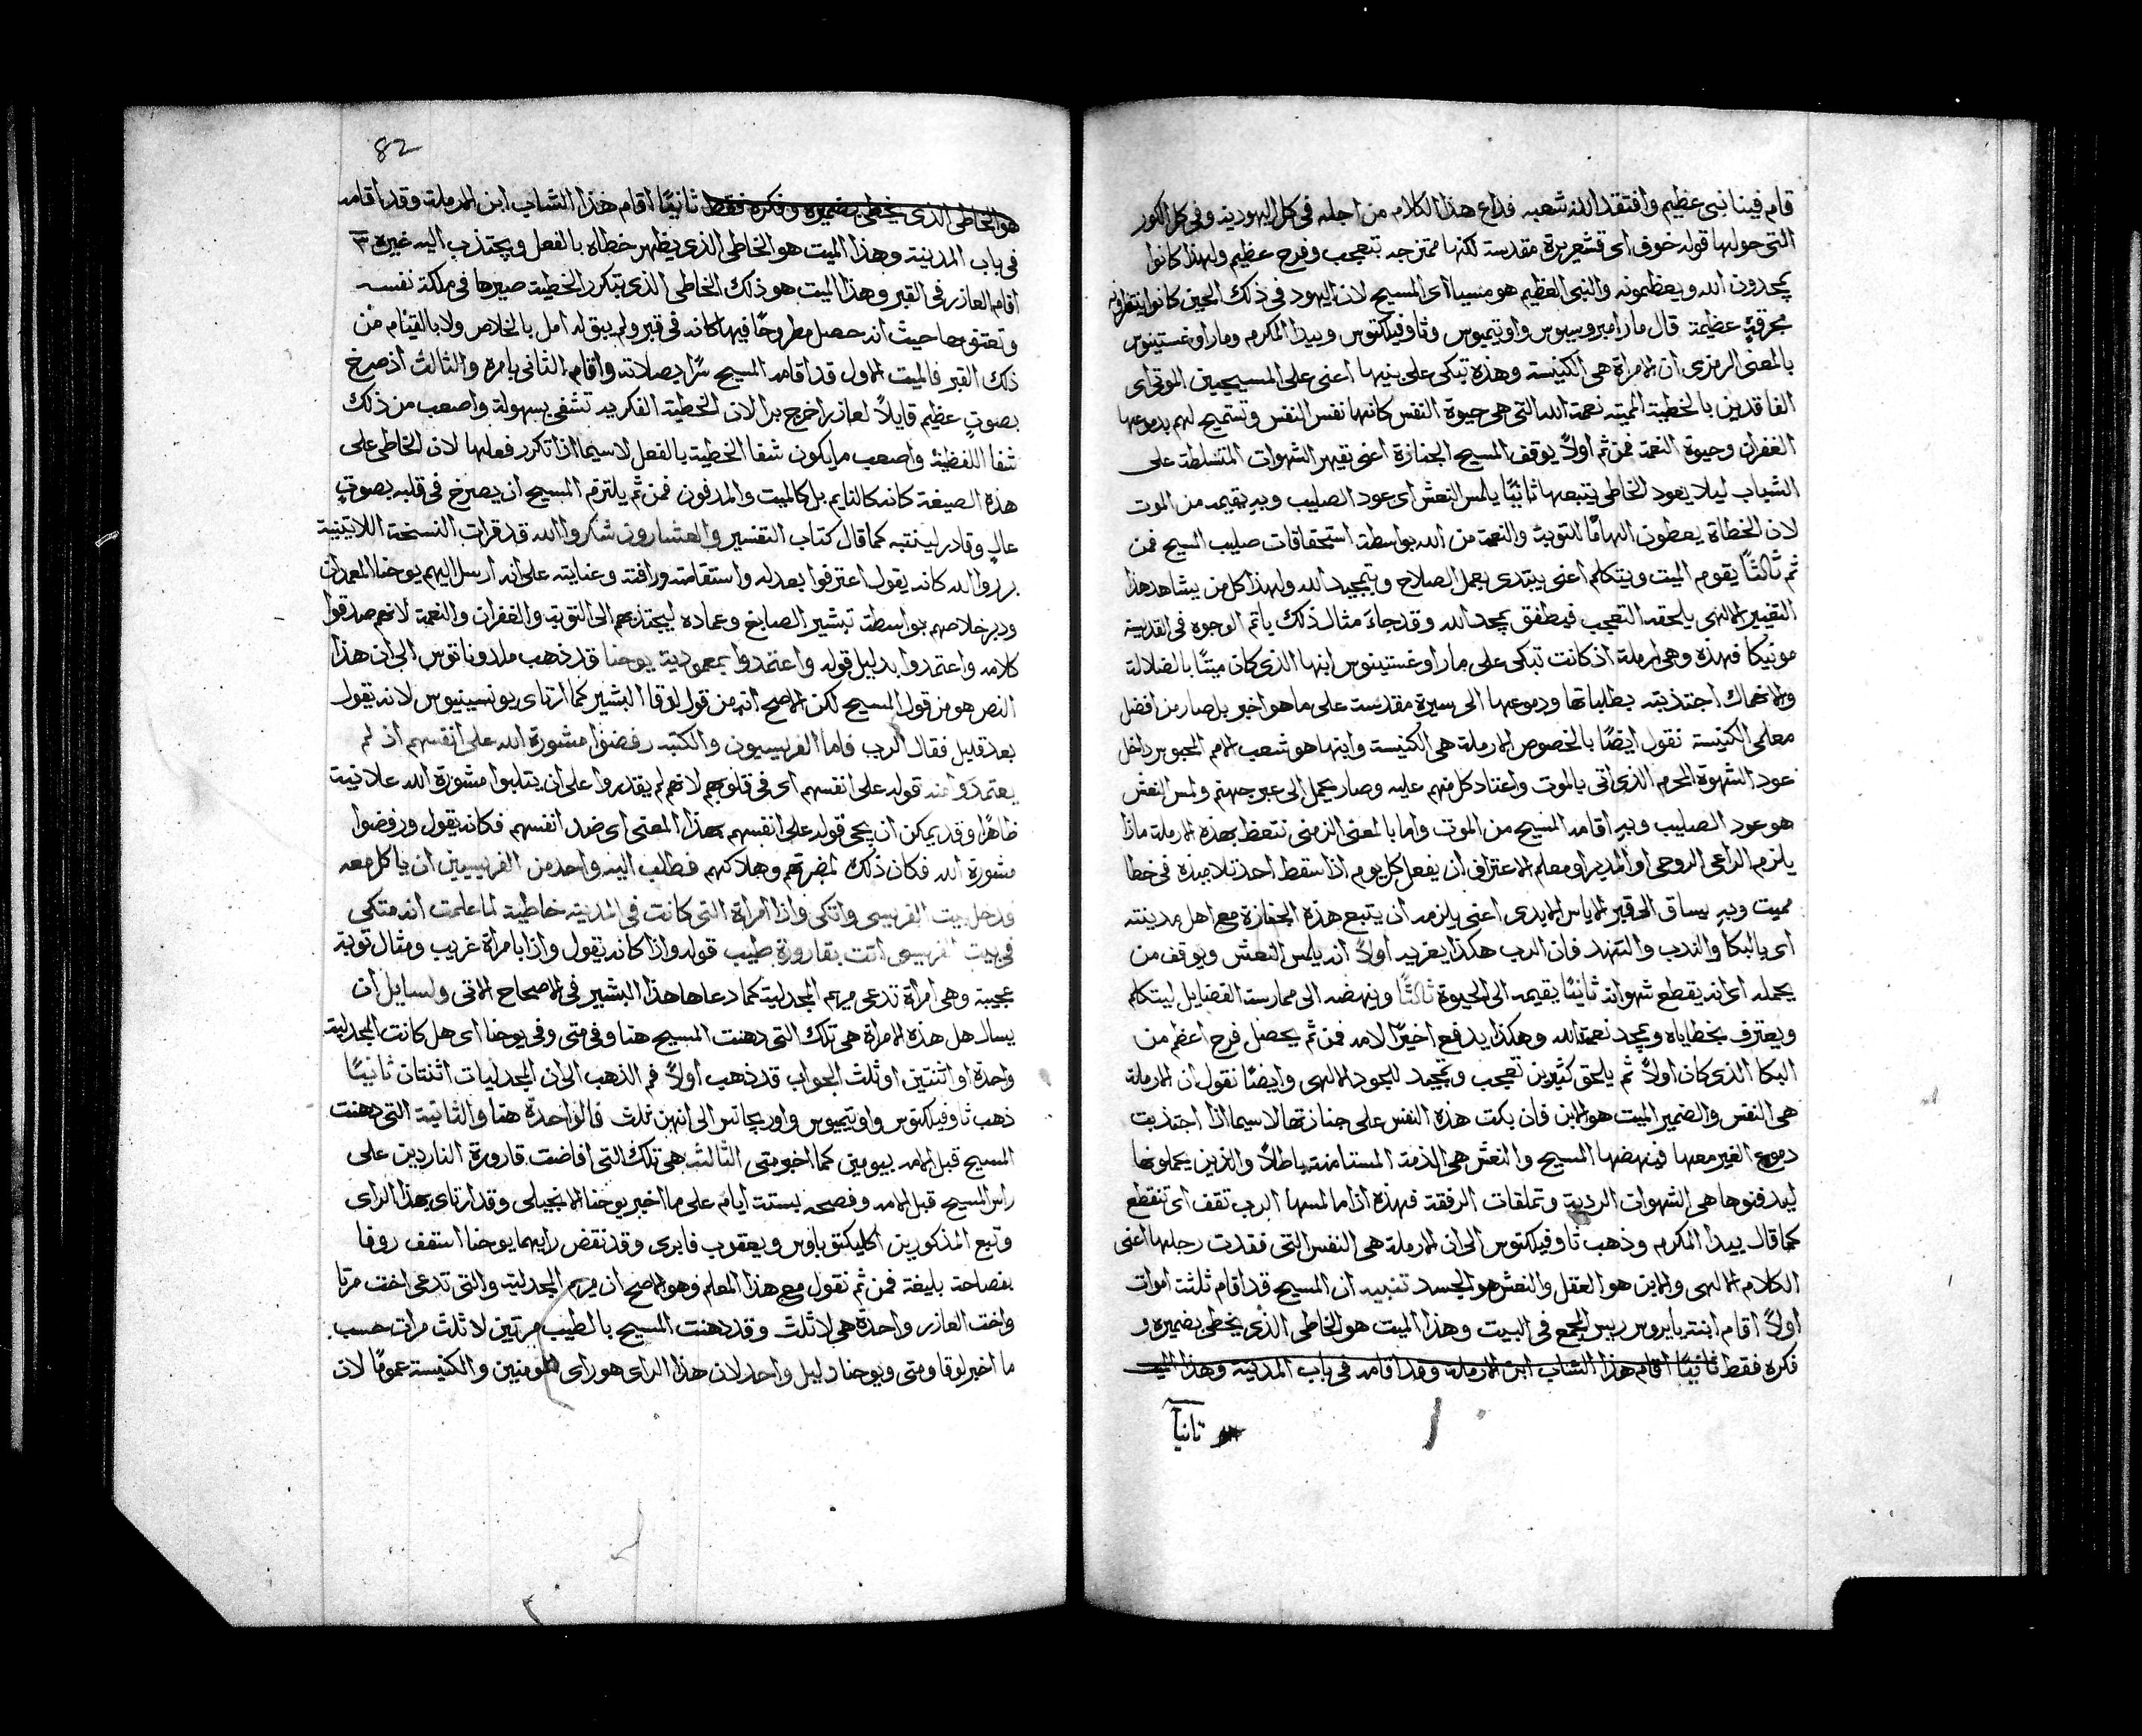 قام فينا نبي عظيم وافتقد الله شعبه فذاع هذا الكلام من اجله في كل اليهوديه وفي كل الكور
التي حولها قوله خوف اي قشعريرة مقدسة لكنها ممتزجه بتعجب وفرح عظيم ولهذا كانوا
يمجدون الله ويعظمونه والنبي العظيم هو مسيا اي المسيح لان اليهود في ذلك الحين كانوا ينتظرونه
بحرقةٍ عظيمة قال مار امبروسيوس واوتيميوس وثاوفيلكتوس وبيدا المكرم ومار اوغستينوس
بالمعني الرمزي ان الامراة هي الكنيسة وهذه تبكي علي بنيها اعني علي المسيحيين الموتي اي
الفاقدين بالخطية المميته نعمة الله التي هي حيوة النفس كانها نفس النفس وتستميح لهم بدموعها
الغفران وحيوة النعمة فمن ثم اولاً يوقف المسيح الجنازة اعني يقهر الشهوات المتسلطة علي
الشباب ليلا يعود الخاطي يتبعها ثانيًا يلمس النعش اي عود الصليب وبهِ يقيمه من الموت
لان الخطاة يعطون الهامًا للتوبة والنعمة من الله بواسطة استحقاقات صليب المسيح فمن
ثم ثالثاً يقوم الميت ويتكلم اعني يبتدي بعمل الصلاح وتمجيد الله ولهذا كل من يشاهد هذا
التغيير الالهي يلحقه التعجب فيطفق يمجد الله وقد جاءَ مثال ذلك باتم الوجوه في القديسة
مونيكا فهذه وهي ارملة اذ كانت تبكي علي مار اوغستينوس ابنها الذي كان ميتًا بالضلالة
والانهماك اجتذبته بطلباتها ودموعها الي سيرة مقدسة علي ما هو اخبر بل صار من افضل
معلمي الكنيسة نقول ايضًا بالخصوص الارملة هي الكنيسة وابنها هو شعب الامم المحبوس داخل
عود الشهوة المحرم الذي اتي بالموت واعتاد كل منهم عليه وصار يحمل الي عبر جهنم ولمس النعش
هو عود الصليب وبهِ اقامه المسيح من الموت واما بالمعني الزمني نتعظ بهذه الارملة ماذا
يلزم الراعي الروحي او المدبر او معلم الاعتراف ان يفعل كل يوم اذا سقط احد تلاميذه في خطا
مميت وبهِ يساق الي قبر الاياس الابدي اعني يلزمه ان يتبع هذه الجنازة مع اهل مدينته
اي بالبكا والندب والتنهد فان الرب هكذا يعزيه اولاً انه يلمس النعش ويوقف من
يحمله اي انه يقطع شهواته ثانيًا يقيمه الي الحيوة ثالثًا وينهضه الي ممارسة الفضايل ليتكلم
ويعترف بخطاياه ويمجد نعمة الله وهكذا يدفع اخيرًا لامه فمن ثم يحصل فرح اعظم من
البكا الذي كان اولاً ثم يلحق كثيرين تعجب وتمجيد للجود الالهي وايضًا نقول ان الارملة
هي النفس والضمير الميت هو الابن فان بكت هذه النفس علي جنازتها لا سيما اذا اجتذبت
دموع الغير معها فينهضها المسيح والنعش هي الذمة المستامنة باطلاً والذين يحملونها
ليدفنوها هي الشهوات الردية وتملقات الرفقة فهذه اذا ما لمسها الرب تقف اي تنقطع
كما قال بيدا المكرم وذهب ثاوفيلكتوس الي ان الارملة هي النفس التي فقدت رجلها اعني
الكلام الالهي والابن هو العقل والنعش هو الجسد تنبيه ان المسيح قد اقام ثلثة اموات
اولاً اقام ابنة يايروس ريس المجمع في البيت وهذا الميت هو الخاطي الذي يخطي بضميره و
فكره فقط ثانيًا اقام هذا الشاب ابن الارملة وقد اقامه في باب المدينة وهذا الميت
ثانياً
82
هو الخاطي الذي يخطي بضميره وفكره فقط ثانيًا اقام هذا الشاب ابن الارملة وقد اقامه
في باب المدينة وهذا الميت هو الخاطي الذي يظهر خطاه بالفعل ويجتذب اليه غيره ٣
اقام العازر في القبر وهذا الميت هو ذلك الخاطي الذي بتكرر الخطية صيرها في ملكة نفسه
وتعتق بها حيث انه حصل مطروحًا فيها كانه في قبر ولم يبق له امل بالخلاص ولا بالقيام من
ذلك القبر فالميت الاول قد اقامه المسيح سرًا بصلاته واقام الثاني بامره والثالث اذ صرخ
بصوتٍ عظيم قايلاً لعازر اخرج برا لان الخطية الفكريه تشفي بسهولة واصعب من ذلك
شفا اللفظية واصعب ما يكون شفا الخطية بالفعل لا سيما اذا تكرر فعلها لان الخاطي علي
هذه الصيغة كانه كالنايم بل كالميت والمدفون فمن ثم يلتزم المسيح ان يصرخ في قلبه بصوتٍ
عالٍ وقادر لينتبه كما قال كتاب التفسير والعشارون شكروا الله قد قرات النسخة اللاتينية
برروا الله كانه يقول اعترفوا بعدله واستقامته ورافته وعنايته علي انه ارسل اليهم يوحنا المعمدان
ودبر خلاصهم بواسطة تبشير الصابغ وعماده ليجتذبهم الي التوبة والغفران والنعمة لانهم صدقوا
كلامه واعتمدوا بدليل قوله واعتمدوا بمعمودية يوحنا قد ذهب ملدوناتوس الي ان هذا
النص هو من قول المسيح لكن الاصح انه من قول لوقا البشير كما ارتاي يونسينيوس لانه يقول
بعد قليل فقال الرب فاما الفريسيون والكتبه رفضوا مشورة الله علي انفسهم اذ لم
يعتمدوا منه قوله علي انفسهم اي في قلوبهم لانهم لم يقدروا علي ان يثلبوا مشورة الله علانية
ظاهرًا وقد يمكن ان يجي قوله علي انفسهم بهذا المعني اي ضد انفسهم فكانه يقول ورفضوا
مشورة الله فكان ذلك لمضرتهم وهلاكهم فطلب اليه واحد من الفريسيين ان ياكل معه
فدخل بيت الفريسي واتكي واذا امراة التي كانت في المدينه خاطية لما علمت انه متكي
في بيت الفريسي اتت بقارورة طيب قوله واذا كانه يقول واذا بامراة غريب ومثال توبة
عجيبة وهي امراة تدعي مريم المجدلية كما دعاها هذا البشير في الاصحاح الاتي ولسايل ان
يسال هل هذه الامراة هي تلك التي دهنت المسيح هنا وفي متي وفي يوحنا اي هل كانت المجدلية
واحدة او اثنتين او ثلث الجواب قد ذهب اولاً فم الذهب الي ان المجدليات اثنتان ثانيًا
ذهب ثاوفيلكتوس واوتيميوس واوريجانس الي انهن ثلث فالواحدة هنا والثانية التي دهنت
المسيح قبل الامه بيومين كما اخبر متي الثالثه هي تلك التي افاضت قارورة الناردين علي
راس المسيح قبل الامه وفصحه بستة ايام علي ما اخبر يوحنا الانجيلي وقد ارتاي بهذا الراي
وتبع المذكورين اكليكتوباوس ويعقوب فابري وقد نقض رايهما يوحنا اسقف روفا
بفصاحة بليغة فمن ثم نقول مع هذا المعلم وهو الاصح ان مريم المجدلية والتي تدعي اخت مرتا
واخت العازر واحدة هي لا ثلث وقد دهنت المسيح بالطيب مرتين لا ثلث مرات حسب
ما اخبر لوقا ومتي ويوحنا دليل واحد لان هذا الراي هو راي المومنين والكنيسة عمومًا لان